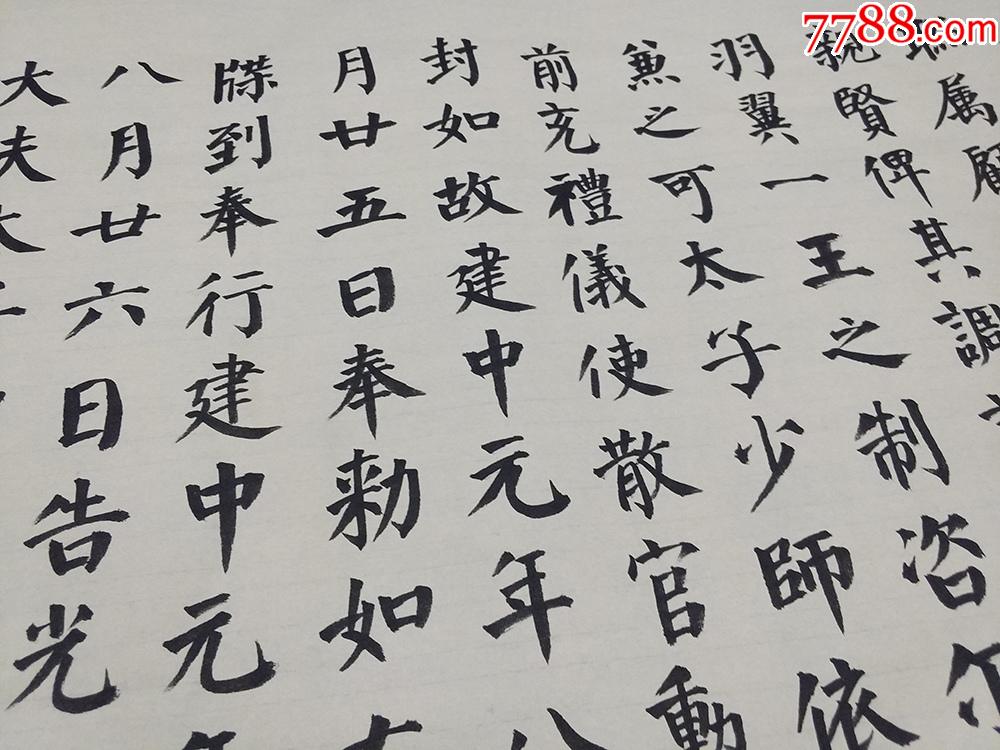 7788.com
属
親賢俾其調
羽翼一王之制咨
兼之可太子少師依
前充禮儀使散官動
封如故建中元年八
月廿五日奉勅如
牒到奉行建中元
八月廿六日告光
大夫